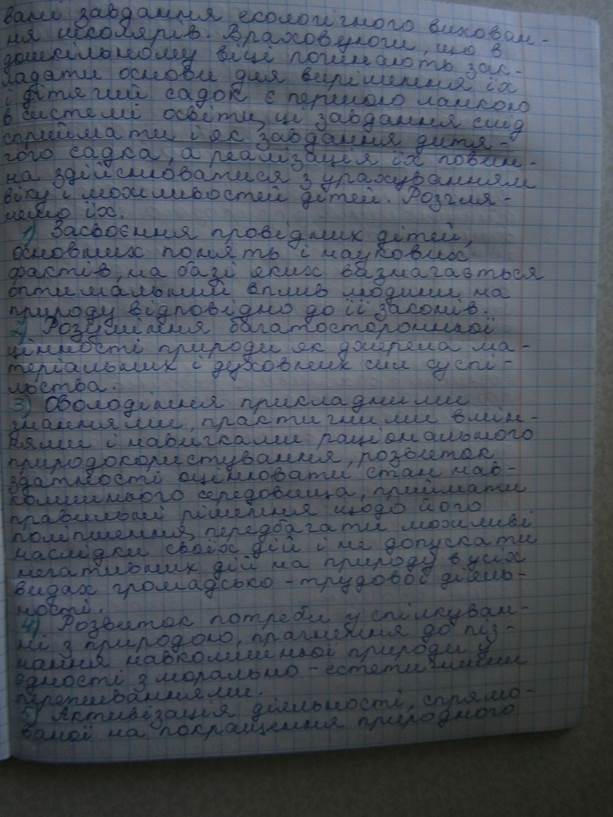 вані завдання екологічного вихован-
ня школярів. Враховуючи, що в
дошкільному віці починають зак-
ладати основи для вирішення їх
і дитячий садок є першою ланкою
в системі освіти, ці завдання слід
сприймати і як завдання дитя-
чого садка, а реалізація їх повин-
на здійснюватися з урахуванням
віку і можливостей дітей. Розгля-
немо їх.
1) Засвоєння провідних дітей,
основних понять і наукових
фактів, на базі яких визначається
оптимальний вплив людини на
природу відповідно до її законів.
2) Розуміння багатосторонньої
цінності природи як джерела ма-
теріальних і духовних сил суспі-
льства.
3) Оволодіння прикладними
знаннями, практичними вмін-
нями і навичками раціонального
природокористування, розвиток
здатності оцінювати стан нав-
колишнього середовища, приймати
правильні рішення щодо його
поліпшення, передбачати можливі
наслідки своїх дій і не допускати
негативних дій на природу в усіх
видах громадсько-трудової діяль-
ності.
4) Розвиток потреби у спілкуван-
ні з природою, прагнення до піз-
нання навколишньої природи у
єдності з морально-естетичними
переживаннями.
5) Активізація діяльності, спрямо-
ваної на покращення природного